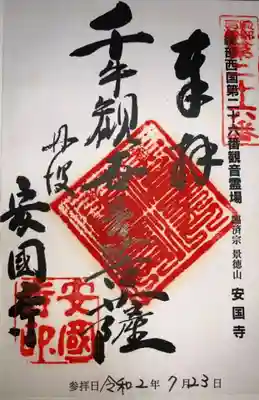 奉拝
綾部西国第二十六番観音霊場 臨済宗 景徳山 安国寺
千手観世音菩薩
丹波
安國寺
安國寺印
参拝日 令和2年 7月23日